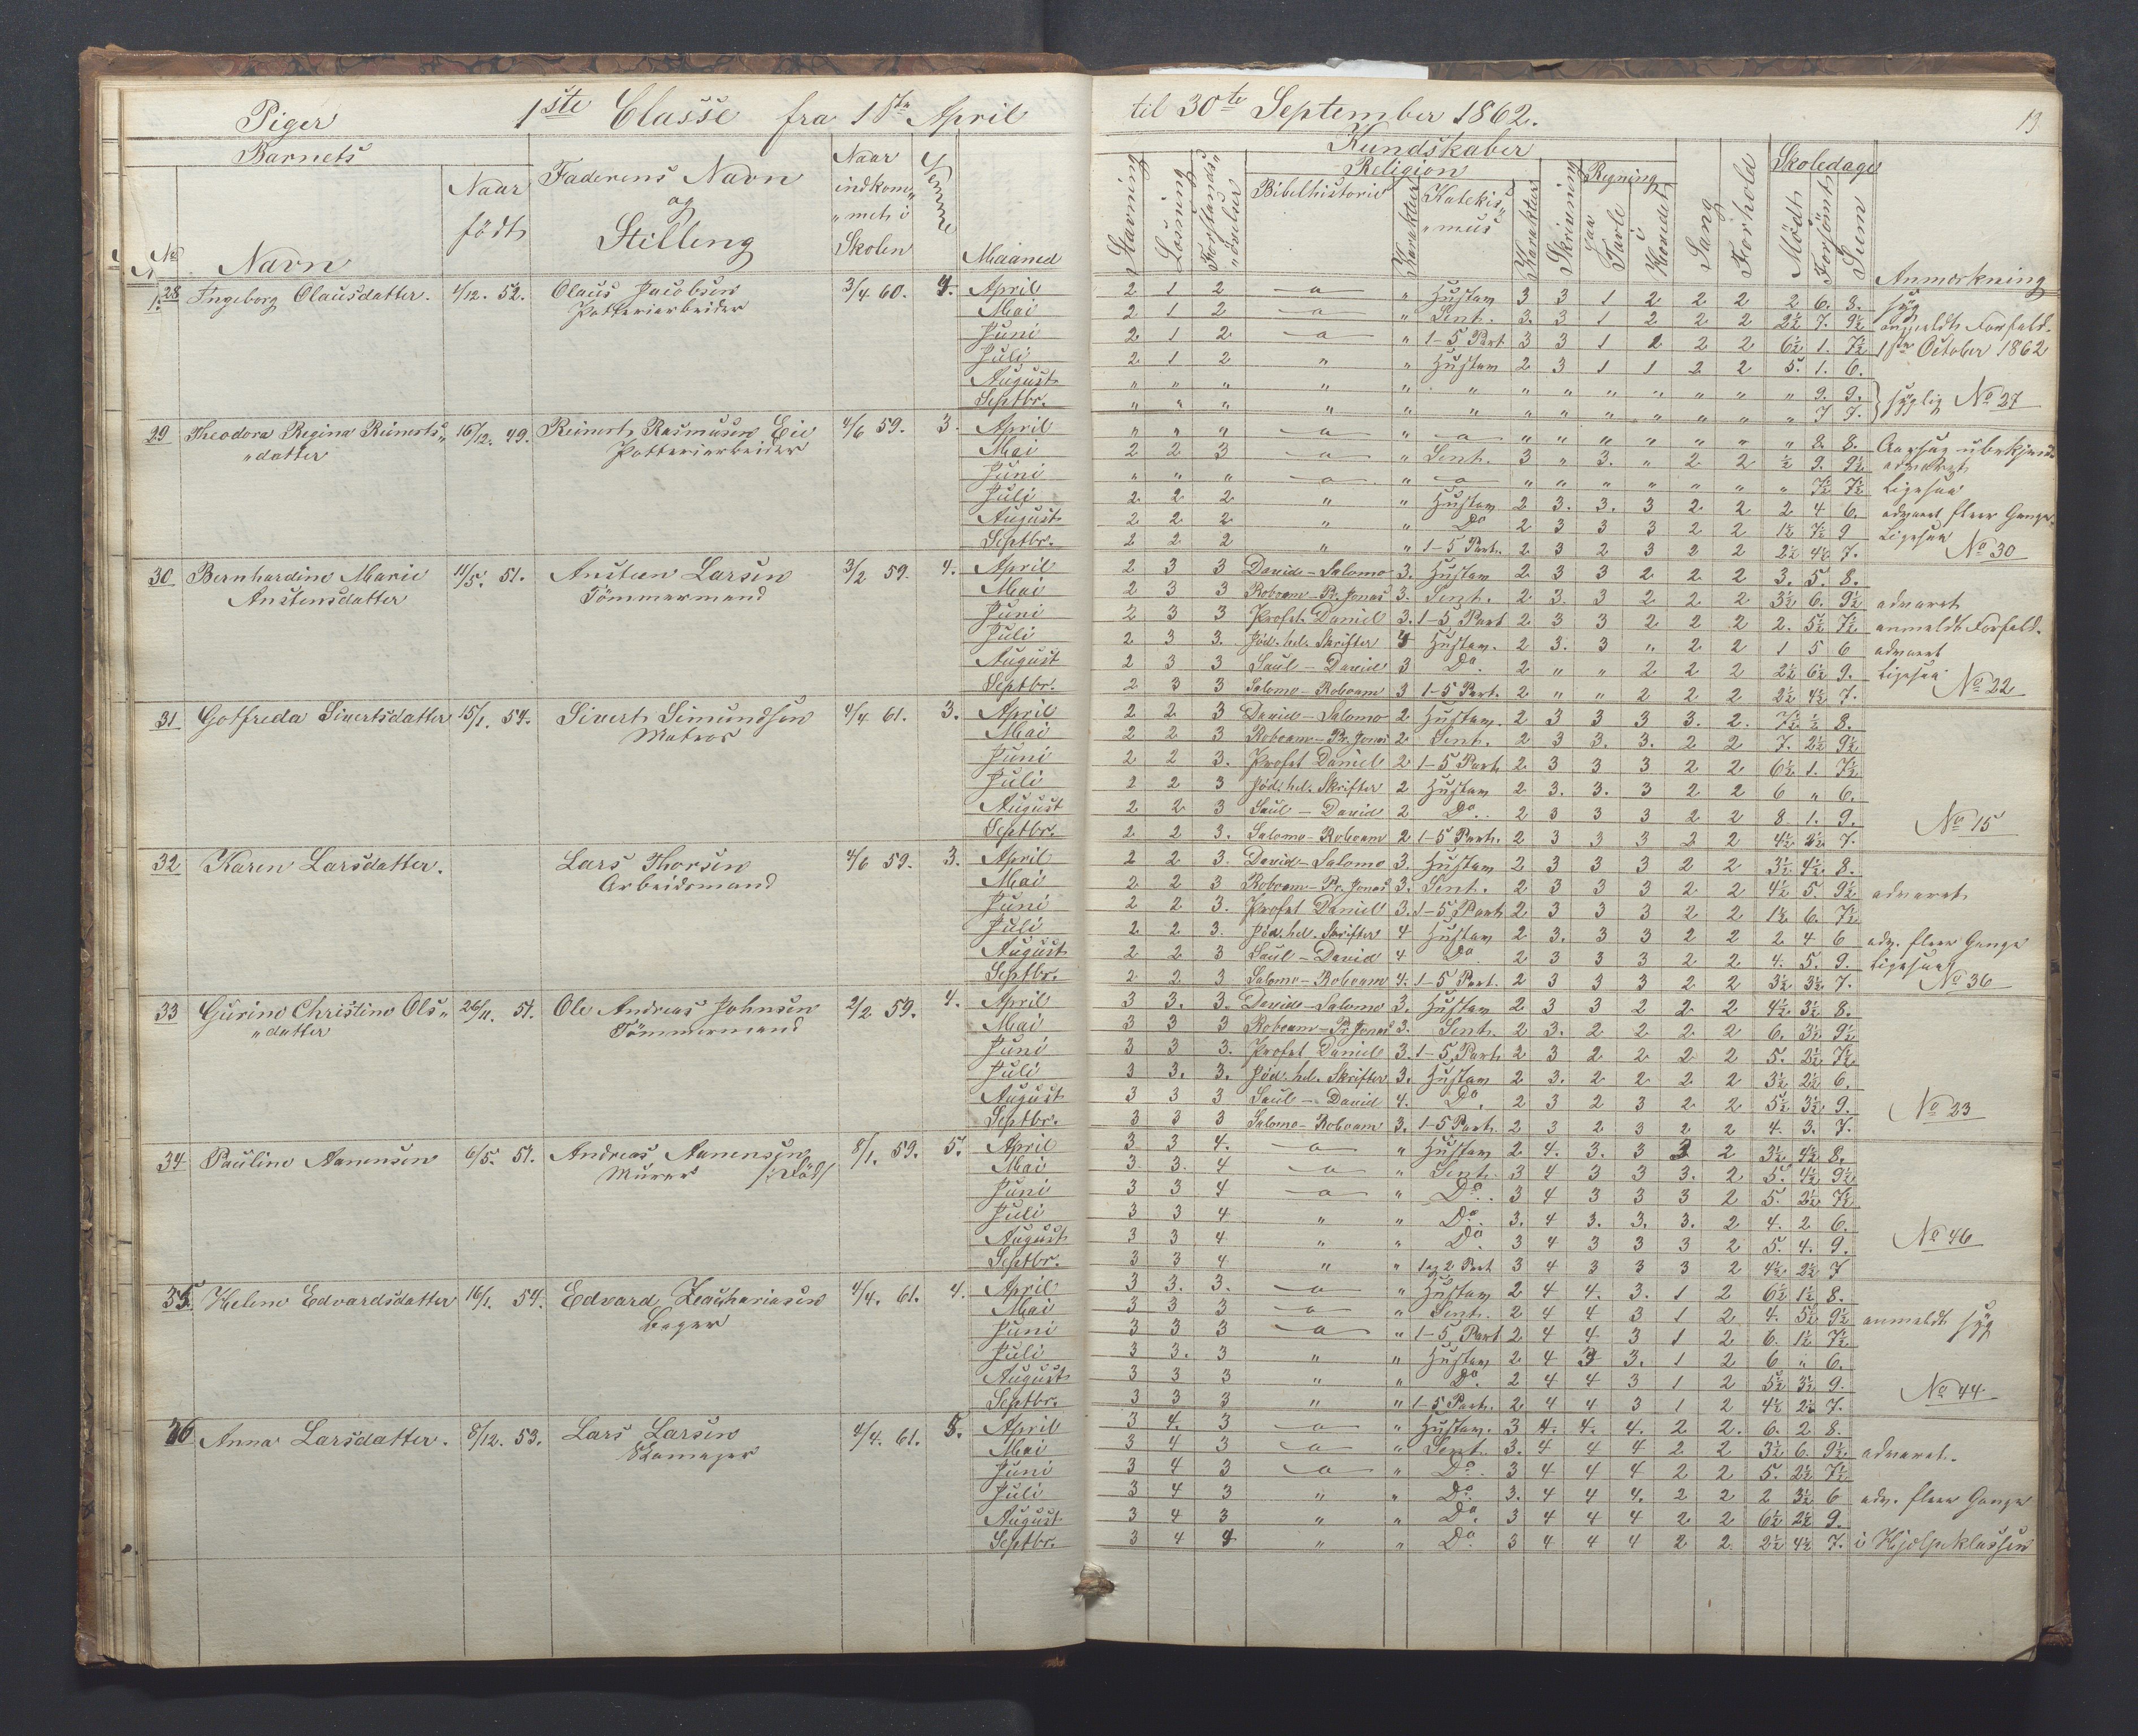 Piger 1ste Classe fra 1ste April
Barnets
Naar
Faderens Navn
indkom„
og
„met i
født
Stilling
Skolen
Evne
No.
Navn
Maaned
28 Ingeborg Olausdatter. 4/12. 52. Olaus Jacobsen 3/4 60. 4. April
Potteriarbeider Mai
Juni
Juli
August
Septbr.
29 Theodora Regina Reinerts„ 16/12. 49. Reinert Rasmusen Eie 4/6 59. 3. April
„datter Potteriarbeider Mai
Juni
Juli
August
Septbr.
30 Bernhardine Marie 11/5. 51. Austeen Larsen 3/2 59. 4. April
Austensdatter Tømmermand Mai
Juni
Juli
August
Septbr.
31 Gotfreda Sivertsdatter 15/1. 54. Sivert Simundsen 4/4 61. 3. April
Matros Mai
Juni
Juli
August
Septbr.
32 Karen Larsdatter. Lars Thorsen 4/6 59. 3. April
Arbeidsmand Mai
Juni
Juli
August
Septbr.
33 Gurine Christine Ols„ 26/11. 51. Ole Andreas Johnsen 2/2 59. 4. April
„datter Tømmermand Mai
Juni
Juli
August
Septbr.
34 Pauline Aanensen 6/5. 51. Andreas Aanensen 8/1. 59. 5. April
Murer /:død/ Mai
Juni
Juli
August
Septbr.
35 Helene Edvardsdatter 16/1. 54. Edvard Zachariasen 4/4. 61. 4. April
Bager Mai
Juni
Juli
August
Septbr.
36 Anna Larsdatter. 8/12. 53. Lars Larsen 4/4. 61. 5. April
Skomager Mai
Juni
Juli
August
Septbr.
til 30te September 1862. 13
Kundskaber
Religion Regning Skoledage
Stavning Læsning Forstands„øvelser Bibelhistorie Karakter Katekis„mus Karakter Skrivning paa Tavle i Hovedet Sang Forhold Mødt Forsømt Sum Anmærkning
2 1 2 a „ Hustav 3 3 1 2 2 2 2 6. 8. syg
2 1 2 a „ Sent. 3. 3 1 2 2 2 2½ 7. 9½ anmeldt Forfald.
2 1 2 a „ 1-5 Part 3 3 1 2 2 2 6½ 1. 7½ 1ste October 1862
2 1 2 „ „ Hustav 2 3 1 1 2 2 5. 1. 6.
„ „ „ „ „ „ „ „ „ „ „ „ „ 9. 9.
„ „ „ „ „ „ „ „ „ „ „ „ „ 7 7. } syglig No 27
„ „ „ a „ a „ „ „ „ „ „ „ 8. 8. Aarsag ubekjendt
2 2 3 a „ Sent. 3 „ 3. „ 2 2 ½ 9. 9½ advaret
„ „ „ a „ a „ „ „ „ „ „ „ 7½ 7½ Ligesaa
2 2 2 „ „ Hustav 2 3. 3. 3 2 2 2 4 6. advaret flere Gange.
2 2 2 „ „ Do 2 3 3 3 2 2 1½ 7½ 9 Ligesaa
2 2 2 „ „ 1-5 Part. 2 3 2 3 2 2 2½ 4½ 7. No 30
2 3 3 David-Salomo 3. Hustav 2 3 3 2 2 2 3. 5. 8.
2 3 3 Roboam-Pr. Jonas 3. Sent. 2 3. 3 2 2 2 3½ 6. 9½ advaret
2 3 3 Profet Daniel 3. 1-5 Part 2 3 3 2 2 2 2. 5½ 7½ anmeldt Forfald.
2 3 3. Jød. hel. Skrifter 4 Hustav. 2 3. 3 „ 2 2 1 5 6 advaret
2 3 3 Saul-David 3 Do. 2 „ „ 2 2 2 2½ 6½ 9. Ligesaa
2 3 3 Salomo-Roboam 3 1-5 Part. 2 „ „ 2 2 2 2½ 4½ 7. No 22
2 2 3 David-Salomo 2 Hustav. 2 3 3 3 3. 2. 7½ ½ 8.
2 2 3 Roboam-Pr. Jonas 2 Sent. 2 3 3. 3. 2 2 7. 2½ 9½
2 2 3. Profet Daniel 2 1-5 Part 2 3 3 3 2 2 6½ 1. 7½
2 2 3 Jød. hel. Skrifter 2 Hustav 2 3. 3. 3 2 2 6 „ 6.
2 2 3 Saul-David 2 Do. 2 3 3 3 2 2 8. 1. 9. No 15
2 2 3. Salomo-Roboam 2 1-5 Part. 2 3 3 3 2 2 4½ 2½ 7.
2 2 3. David-Salomo 3. Hustav 2 3 3 3 2 2 3½ 4½ 8.
2 2 3 Roboam-Pr. Jonas 3. Sent. 2 3 3 3 2 2 4½ 5. 9½ advaret
2 2 3. Profet Daniel 3. 1-5 Part 2 3 3 3 2 2 1½ 6. 7½
2 2 3. Jød. hel. Skrifter 4 Hustav 2 3. 3 3 2 2 2 4 6 adv. flere Gange
2 2 3 Saul-David 4 Do 2 3 3 3 2 2 4. 5. 9. Ligesaa
2 2 3 Salomo-Roboam 4. 1-5 Part. 2 3 3 3 2 2 3½ 3½ 7. No 36
3 3. 3. David-Salomo 3. Hustav 2 3 3 2 2 2 4½ 3½ 8.
3 3 3 Roboam-Pr. Jonas 3. Sent. 2 3. 2 2 2 2 6. 3½ 9½
3 3 3. Profet Daniel 3. 1-5 Part. 2 3 2 2 2 2 5. 2½ 7½
3 3. 3. Jød. hel. Skrifter 3. Hustav 2 3. 2 2 2 2 3½ 2½ 6.
3 3 3 Saul-David 4. Do. 2 3 2 3 2 2 5½ 3½ 9. No 23
3 3 3 Salomo-Roboam 3. 1-5 Part. 2 3 2 3 2 2 4. 3. 7.
3 3 4. a „ Hustav 2 4. 3. 3 3 2 3½ 4½ 8.
3 3. 4 a „ Sent. 3 4 3 3 3. 2 5. 4½ 9½
3 3 4 a „ Do. 3 4 3 3 3 2 5. 2½ 7½
3 3 4 „ „ Do. 3. 4 3. 3. 3. 2 4. 2 6.
3 3 4 „ „ Do. 3 4 3 3 3 2 5. 4. 9. No 46
3 3 4 „ „ 1 og 2 Part 3 4 3 3 3 2 4½ 2½ 7
3 3. 3. a „ Hustav 2 4 4. 3. 1 2 6½ 1½ 8.
3 3 3 a „ Sent. 2 4 4 3 1 2 4. 5½ 9½ anmeldt syg
3 3 3 a „ 1-5 Part 2 4 4 3 1 2 6. 1½ 7½
3 3. 3 „ „ Hustav 2 4 3 3. 1 2 6 „ 6.
3 3 3 „ „ Do. 2 4 4 3 1 2 5½ 3½ 9. No 44
3 3 3 „ „ 1-5 Part. 2 4 4 3 1 2 4½ 2½ 7.
3 4. 3 a „ Hustav. 3 4. 4. 4. 2 2. 6. 2 8.
3 4 3 a „ Sent. 3. 4 4 4 2 2 3½ 6. 9½ advaret.
3 4 3 a „ Do. 3 4 4 4 2 2 5. 2½ 7½
3 4 3 „ „ Do. 3. 4 4 4. 2 2 2 3½ 6 adv. flere Gange
3 4 3 „ „ Do. 3 4 4 4 2 2 6½ 2½ 9.
3 4 4 „ „ Do 3 4 4 4 2 2 2½ 4½ 7. i Hjelpeklassen